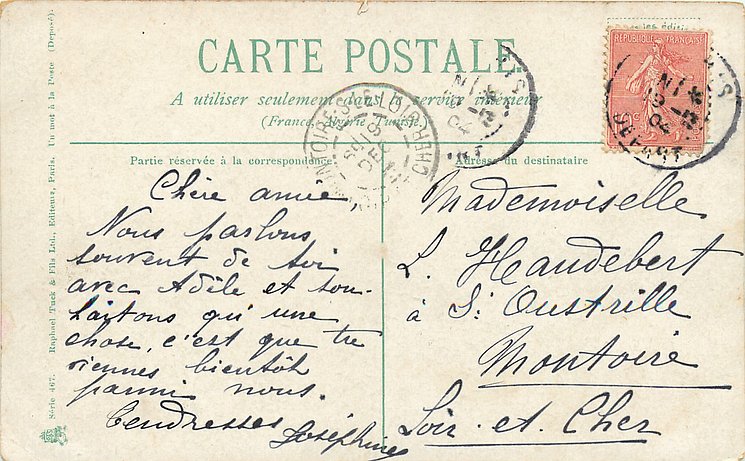 CARTE POSTALE.
A utiliser seulement dans le service intérieur
(France, Algérie, Tunisie.)
Partie réservée à la correspondance.
Adresse du destinataire
RÉPUBLIQUE FRANÇAISE
Chère amie,
Nous parlons
souvent de toi
avec Adèle et sou-
haitons qu'une
chose, c'est que tu
viennes bientôt
parmi nous.
Tendresses
Joséphine
Mademoiselle
L. Haudebert
à St Oustrille
Montoire
Loir-et-Cher
Série 467. Raphael Tuck & Fils Ltd., Editeurs, Paris. Un mot à la Poste (Déposé).